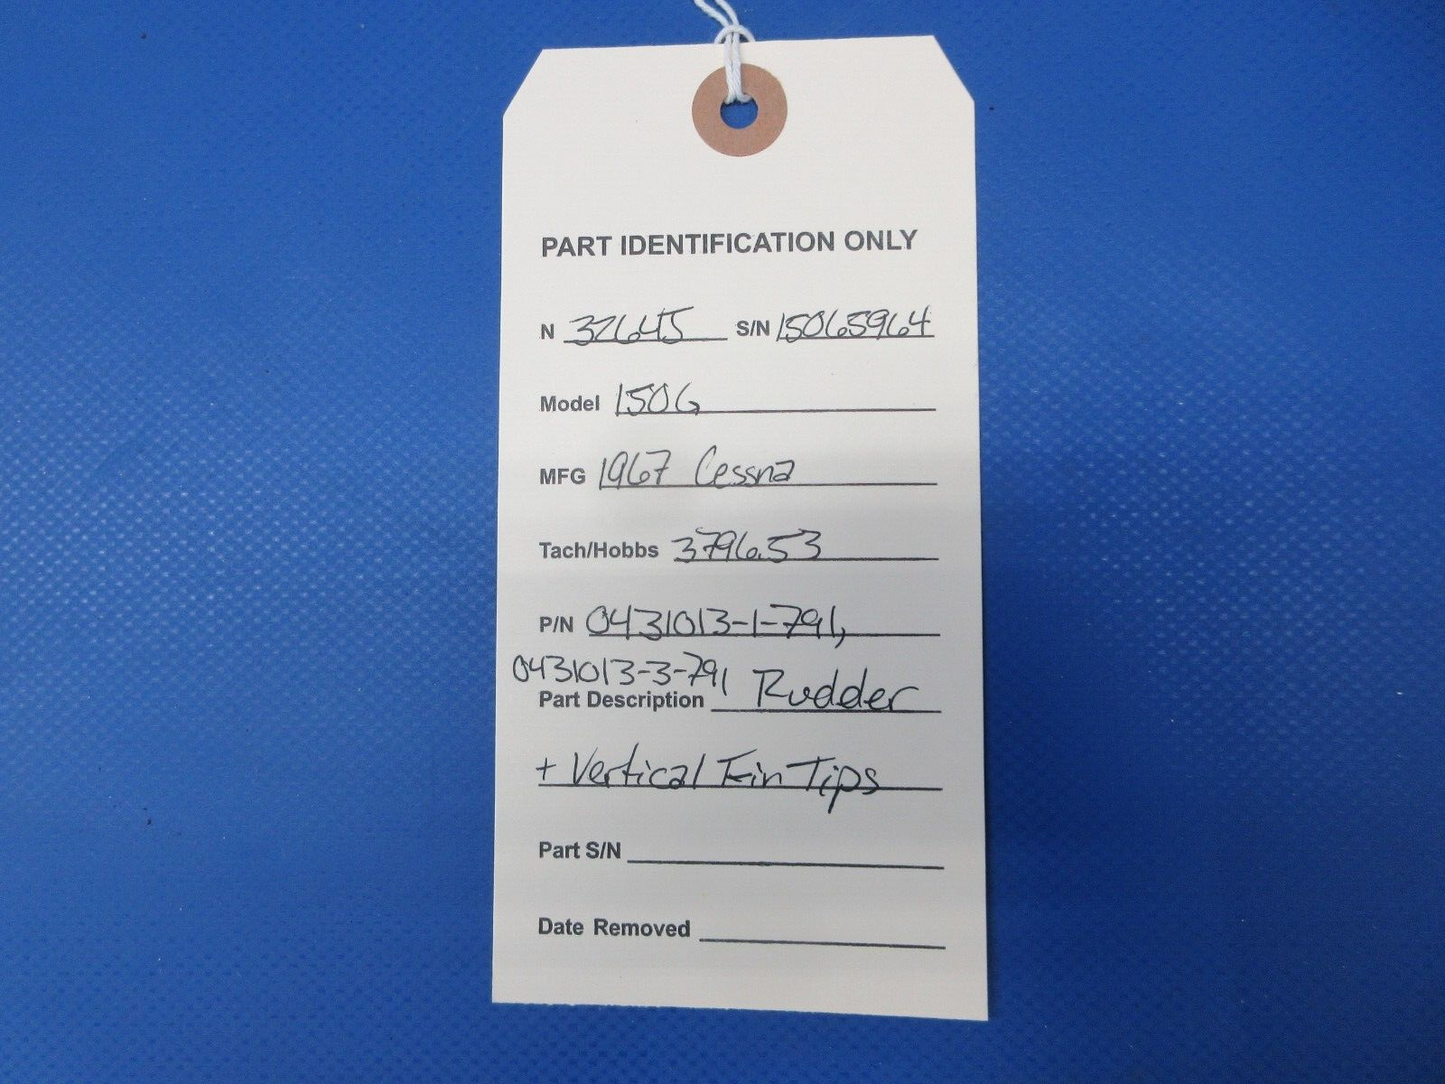 PART IDENTIFICATION ONLY
N 32645 S/N 15065964
Model 150G
MFG 1967 Cessna
Tach/Hobbs 3796.53
P/N 0431013-1-791,
0431013-3-791
Part Description Rudder
+ Vertical Fin Tips
Part S/N
Date Removed